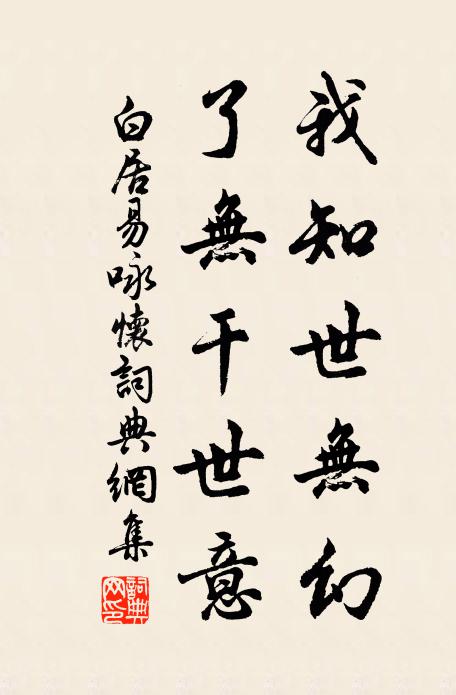 我知世無幻
了無干世意
白居易咏懷詞典網集
詞典網印